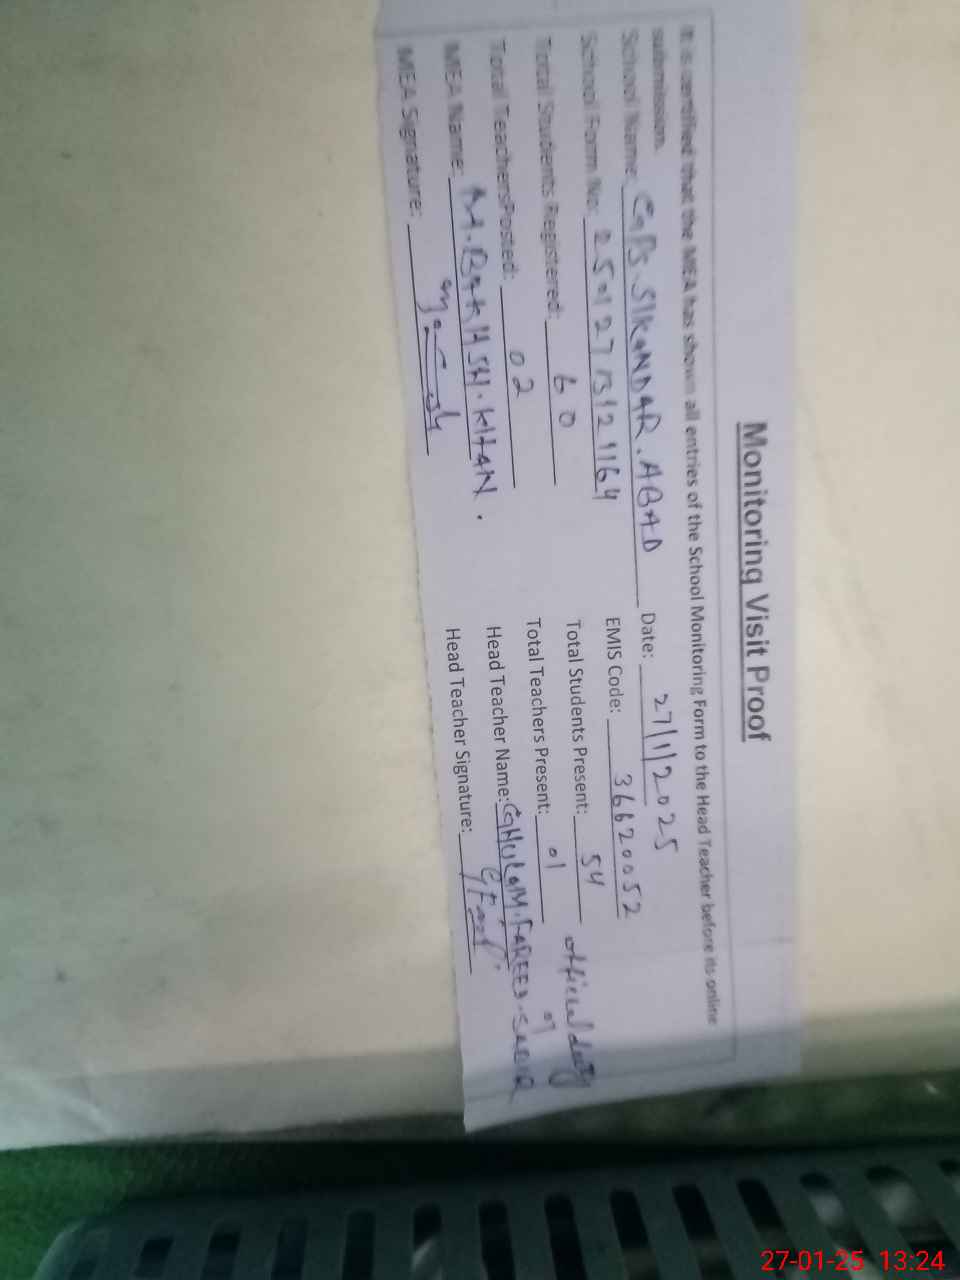 Monitoring Visit Proof
It is certified that the MEA has shown all entries of the School Monitoring Form to the Head Teacher before its online
submission.
School Name: GPS. SIKANDAR. ABAD Date: 27/1/2025
School Form No: EMIS Code: 36620052
Total Students Registered: 60 Total Students Present: 54 official duty
Total TeachersPosted: 02 Total Teachers Present: 01 01
MEA Name: M. BAKHSH. KHAN. Head Teacher Name: GHULAM. FAREED. SABIR
MEA Signature: Head Teacher Signature:
27-01-25 13:24